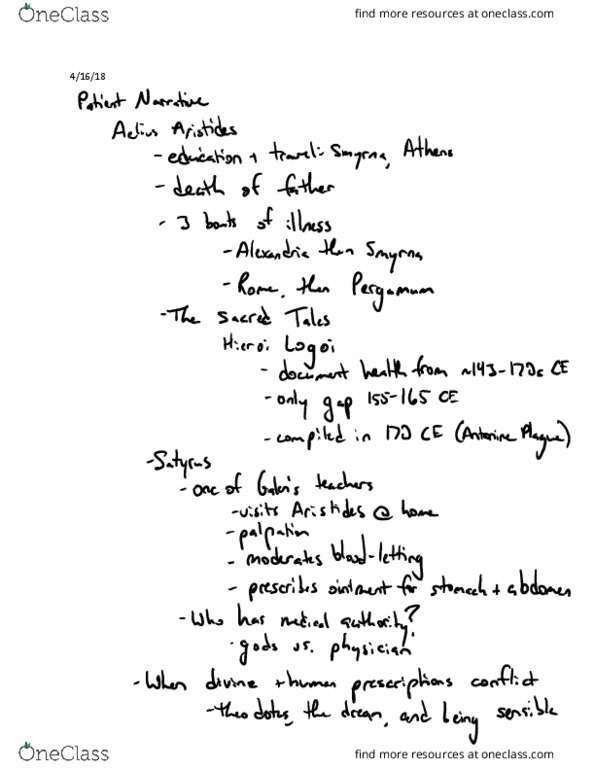 OneClass
find more resources at oneclass.com
4/16/18
Patient Narrative
Aelius Aristides
- education + travel: Smyrna, Athens
- death of father
- 3 bouts of illness
- Alexandria then Smyrna
- Rome, then Pergamum
- The Sacred Tales
Hieroi Logoi
- document health from ~143-170s CE
- only gap 155-165 CE
- compiled in 170 CE (Antonine Plague)
- Satyrus
- one of Galen's teachers
- visits Aristides @ home
- palpation
- moderates blood-letting
- prescribes ointment for stomach + abdomen
- Who has medical authority?
- gods vs. physician
- When divine + human prescriptions conflict
- Theodotos, the dream, and being sensible
OneClass
find more resources at oneclass.com